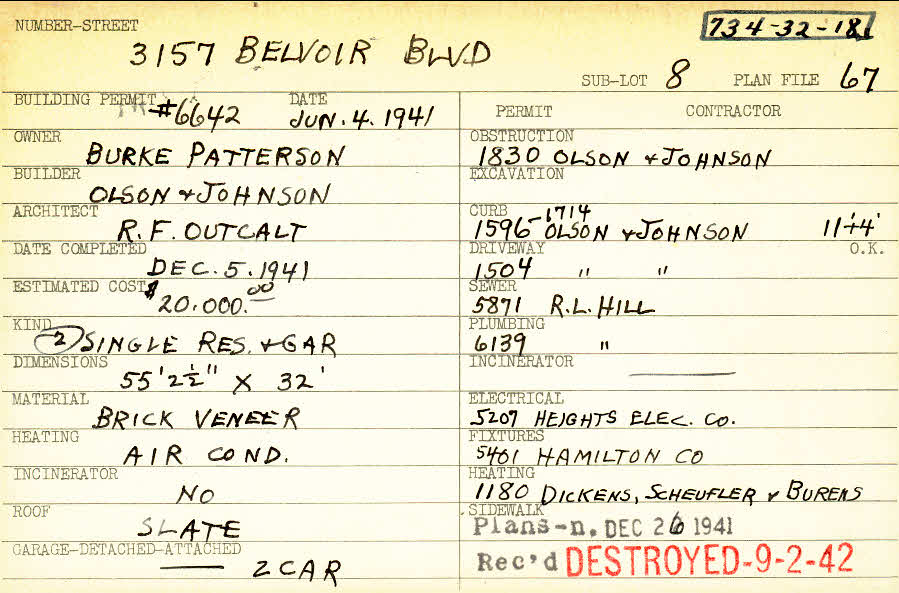 NUMBER-STREET
734-32-18
3157 BELVOIR BLVD
SUB-LOT 8 PLAN FILE 67
BUILDING PERMIT #6642 DATE JUN. 4. 1941
OWNER
BURKE PATTERSON
BUILDER
OLSON & JOHNSON
ARCHITECT
R. F. OUTCALT
DATE COMPLETED
DEC. 5. 1941
ESTIMATED COST
$20.000.00
KIND
(2) SINGLE RES. & GAR
DIMENSIONS
55' 2½" X 32'
MATERIAL
BRICK VENEER
HEATING
AIR COND.
INCINERATOR
NO
ROOF
SLATE
GARAGE-DETACHED-ATTACHED
2 CAR
PERMIT CONTRACTOR
OBSTRUCTION
1830 OLSON & JOHNSON
EXCAVATION
CURB
1714
1596- OLSON & JOHNSON 11+4'
DRIVEWAY O.K.
1504 " "
SEWER
5871 R.L. HILL
PLUMBING
6139 "
INCINERATOR
ELECTRICAL
5207 HEIGHTS ELEC. CO.
FIXTURES
5401 HAMILTON CO
HEATING
1180 DICKENS, SCHEUFLER & BURENS
SIDEWALK
Plans-n. DEC 26 1941
Rec'd DESTROYED-9-2-42